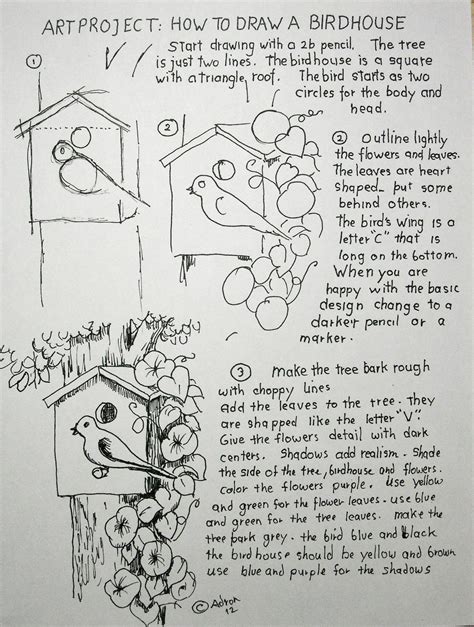 ART PROJECT: HOW TO DRAW A BIRDHOUSE
1
Start drawing with a 2b pencil. The tree
is just two lines. The birdhouse is a square
with a triangle roof. The bird starts as two
circles for the body and
head.
2
2 Outline lightly
the flowers and leaves.
The leaves are heart
shaped but some
behind others.
The bird's wing is a
letter "C" that is
long on the bottom.
When you are
happy with the basic
design change to a
darker pencil or a
marker.
3 make the tree bark rough
with choppy lines
Add the leaves to the tree. They
are shapped like the letter "V".
Give the flowers detail with dark
centers. Shadows add realism. Shade
the side of the tree, birdhouse and flowers.
color the flowers purple. use yellow
and green for the flower leaves. use blue
and green for the tree leaves. make the
tree park grey. the bird blue and black
the birdhouse should be yellow and brown
use blue and purple for the shadows
© Adron
12